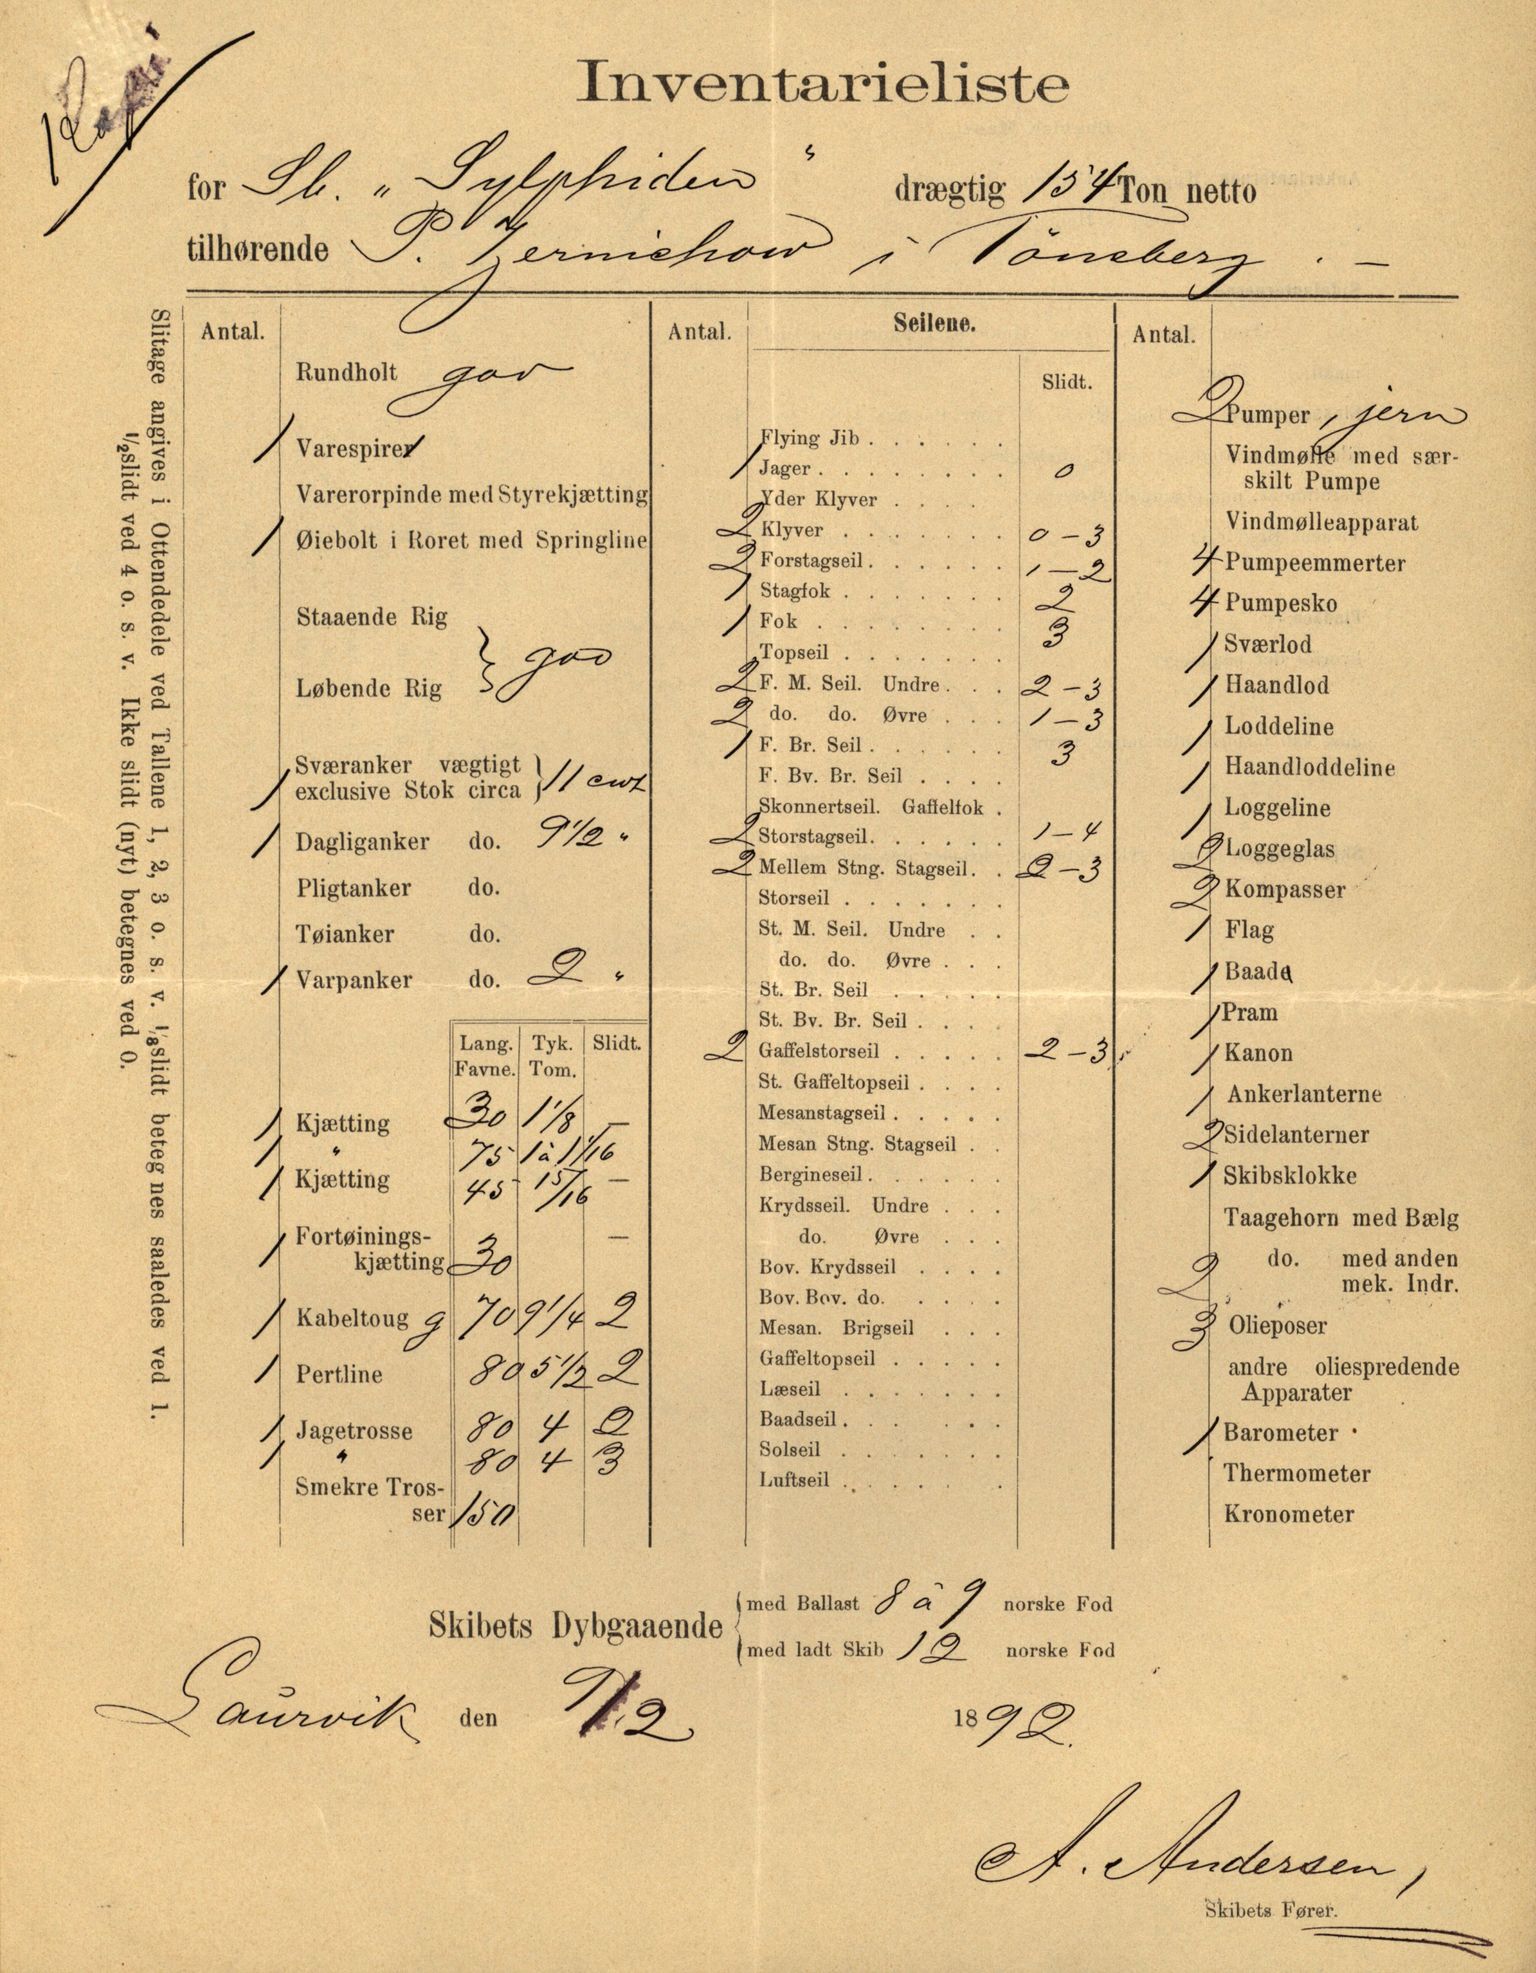 Kopi
Inventarieliste
for Sb. „Sylphiden“ drægtig 154 Ton netto
tilhørende P. Jernichow i Tönsberg. —
Slitage angives i Ottendedele ved Tallene 1, 2, 3 o. s. v. 1/8 slidt betegnes saaledes ved 1.
1/2 slidt ved 4 o. s. v. Ikke slidt (nyt) betegnes ved 0.
Antal.
Rundholt god
1 Varespirer
Varerorpinde med Styrekjætting
1 Øiebolt i Roret med Springline
Staaende Rig
Løbende Rig } god
1 Sværanker vægtigt
exclusive Stok circa } 11 cwt
1 Dagliganker do. 9 1/2 "
Pligtanker do.
Tøianker do.
1 Varpanker do. 2 "
Lang. Favne. Tyk. Tom. Slidt.
1 Kjætting 30 1 1/8 —
1 " 75 1 à 1 1/16
1 Kjætting 45 15/16 —
1 Fortøinings-
kjætting 30 —
1 Kabeltoug g 70 9 1/4 2
1 Pertline 80 5 1/2 2
1 Jagetrosse 80 4 2
1 " 80 4 3
Smekre Tros-
ser 150
Antal. Seilene.
Slidt.
Flying Jib . . . . . .
1 Jager . . . . . . . 0
Yder Klyver . . . .
2 Klyver . . . . . . . 0 – 3
2 Forstagseil . . . . . . 1 – 2
1 Stagfok . . . . . . . 2
1 Fok . . . . . . . . 3
Topseil . . . . . . .
2 F. M. Seil. Undre . . . 2 – 3
2 do. do. Øvre . . . 1 – 3
1 F. Br. Seil . . . . . . 3
F. Bv. Br. Seil . . . .
Skonnertseil. Gaffelfok .
2 Storstagseil . . . . . . 1 – 4
2 Mellem Stng. Stagseil . . 2 – 3
Storseil . . . . . . .
St. M. Seil. Undre . .
do. do. Øvre . . .
St. Br. Seil . . . . .
St. Bv. Br. Seil . . . .
2 Gaffelstorseil . . . . . 2 – 3
St. Gaffeltopseil . . . .
Mesanstagseil . . . . .
Mesan Stng. Stagseil . .
Bergineseil . . . . . .
Krydsseil. Undre . . .
do. Øvre . . .
Bov. Krydsseil . . . .
Bov. Bov. do. . . . .
Mesan. Brigseil . . .
Gaffeltopseil . . . . .
Læseil . . . . . . .
Baadseil . . . . . .
Solseil . . . . . . .
Luftseil . . . . . .
Antal.
2 Pumper, jern
Vindmølle med sær-
skilt Pumpe
Vindmølleapparat
4 Pumpeemmerter
4 Pumpesko
1 Sværlod
1 Haandlod
1 Loddeline
1 Haandloddeline
1 Loggeline
2 Loggeglas
2 Kompasser
1 Flag
1 Baade
1 Pram
1 Kanon
1 Ankerlanterne
2 Sidelanterner
1 Skibsklokke
Taagehorn med Bælg
2 do. med anden
mek. Indr.
3 Olieposer
andre oliespredende
Apparater
1 Barometer
Thermometer
Kronometer
Skibets Dybgaaende
med Ballast 8 à 9 norske Fod
med ladt Skib 12 norske Fod
Laurvik den 9/12 1892.
A. Andersen,
Skibets Fører.